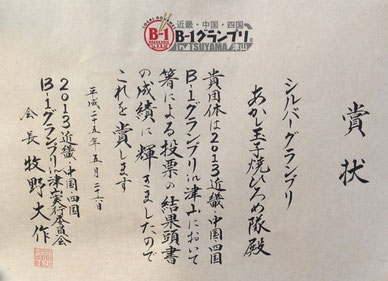 LOCAL GOURMET
B-1
近畿・中国・四国
B-1グランプリ
in TSUYAMA 津山
賞状
シルバーグランプリ
あかし玉子焼ひろめ隊殿
貴団体は2013近畿・中国・四国
B-1グランプリin津山において
箸による投票の結果頭書
の成績に輝きましたので
これを賞します
平成二十五年五月二十六日
2013近畿・中国・四国
B-1グランプリin津山実行委員会
会長 牧野大作